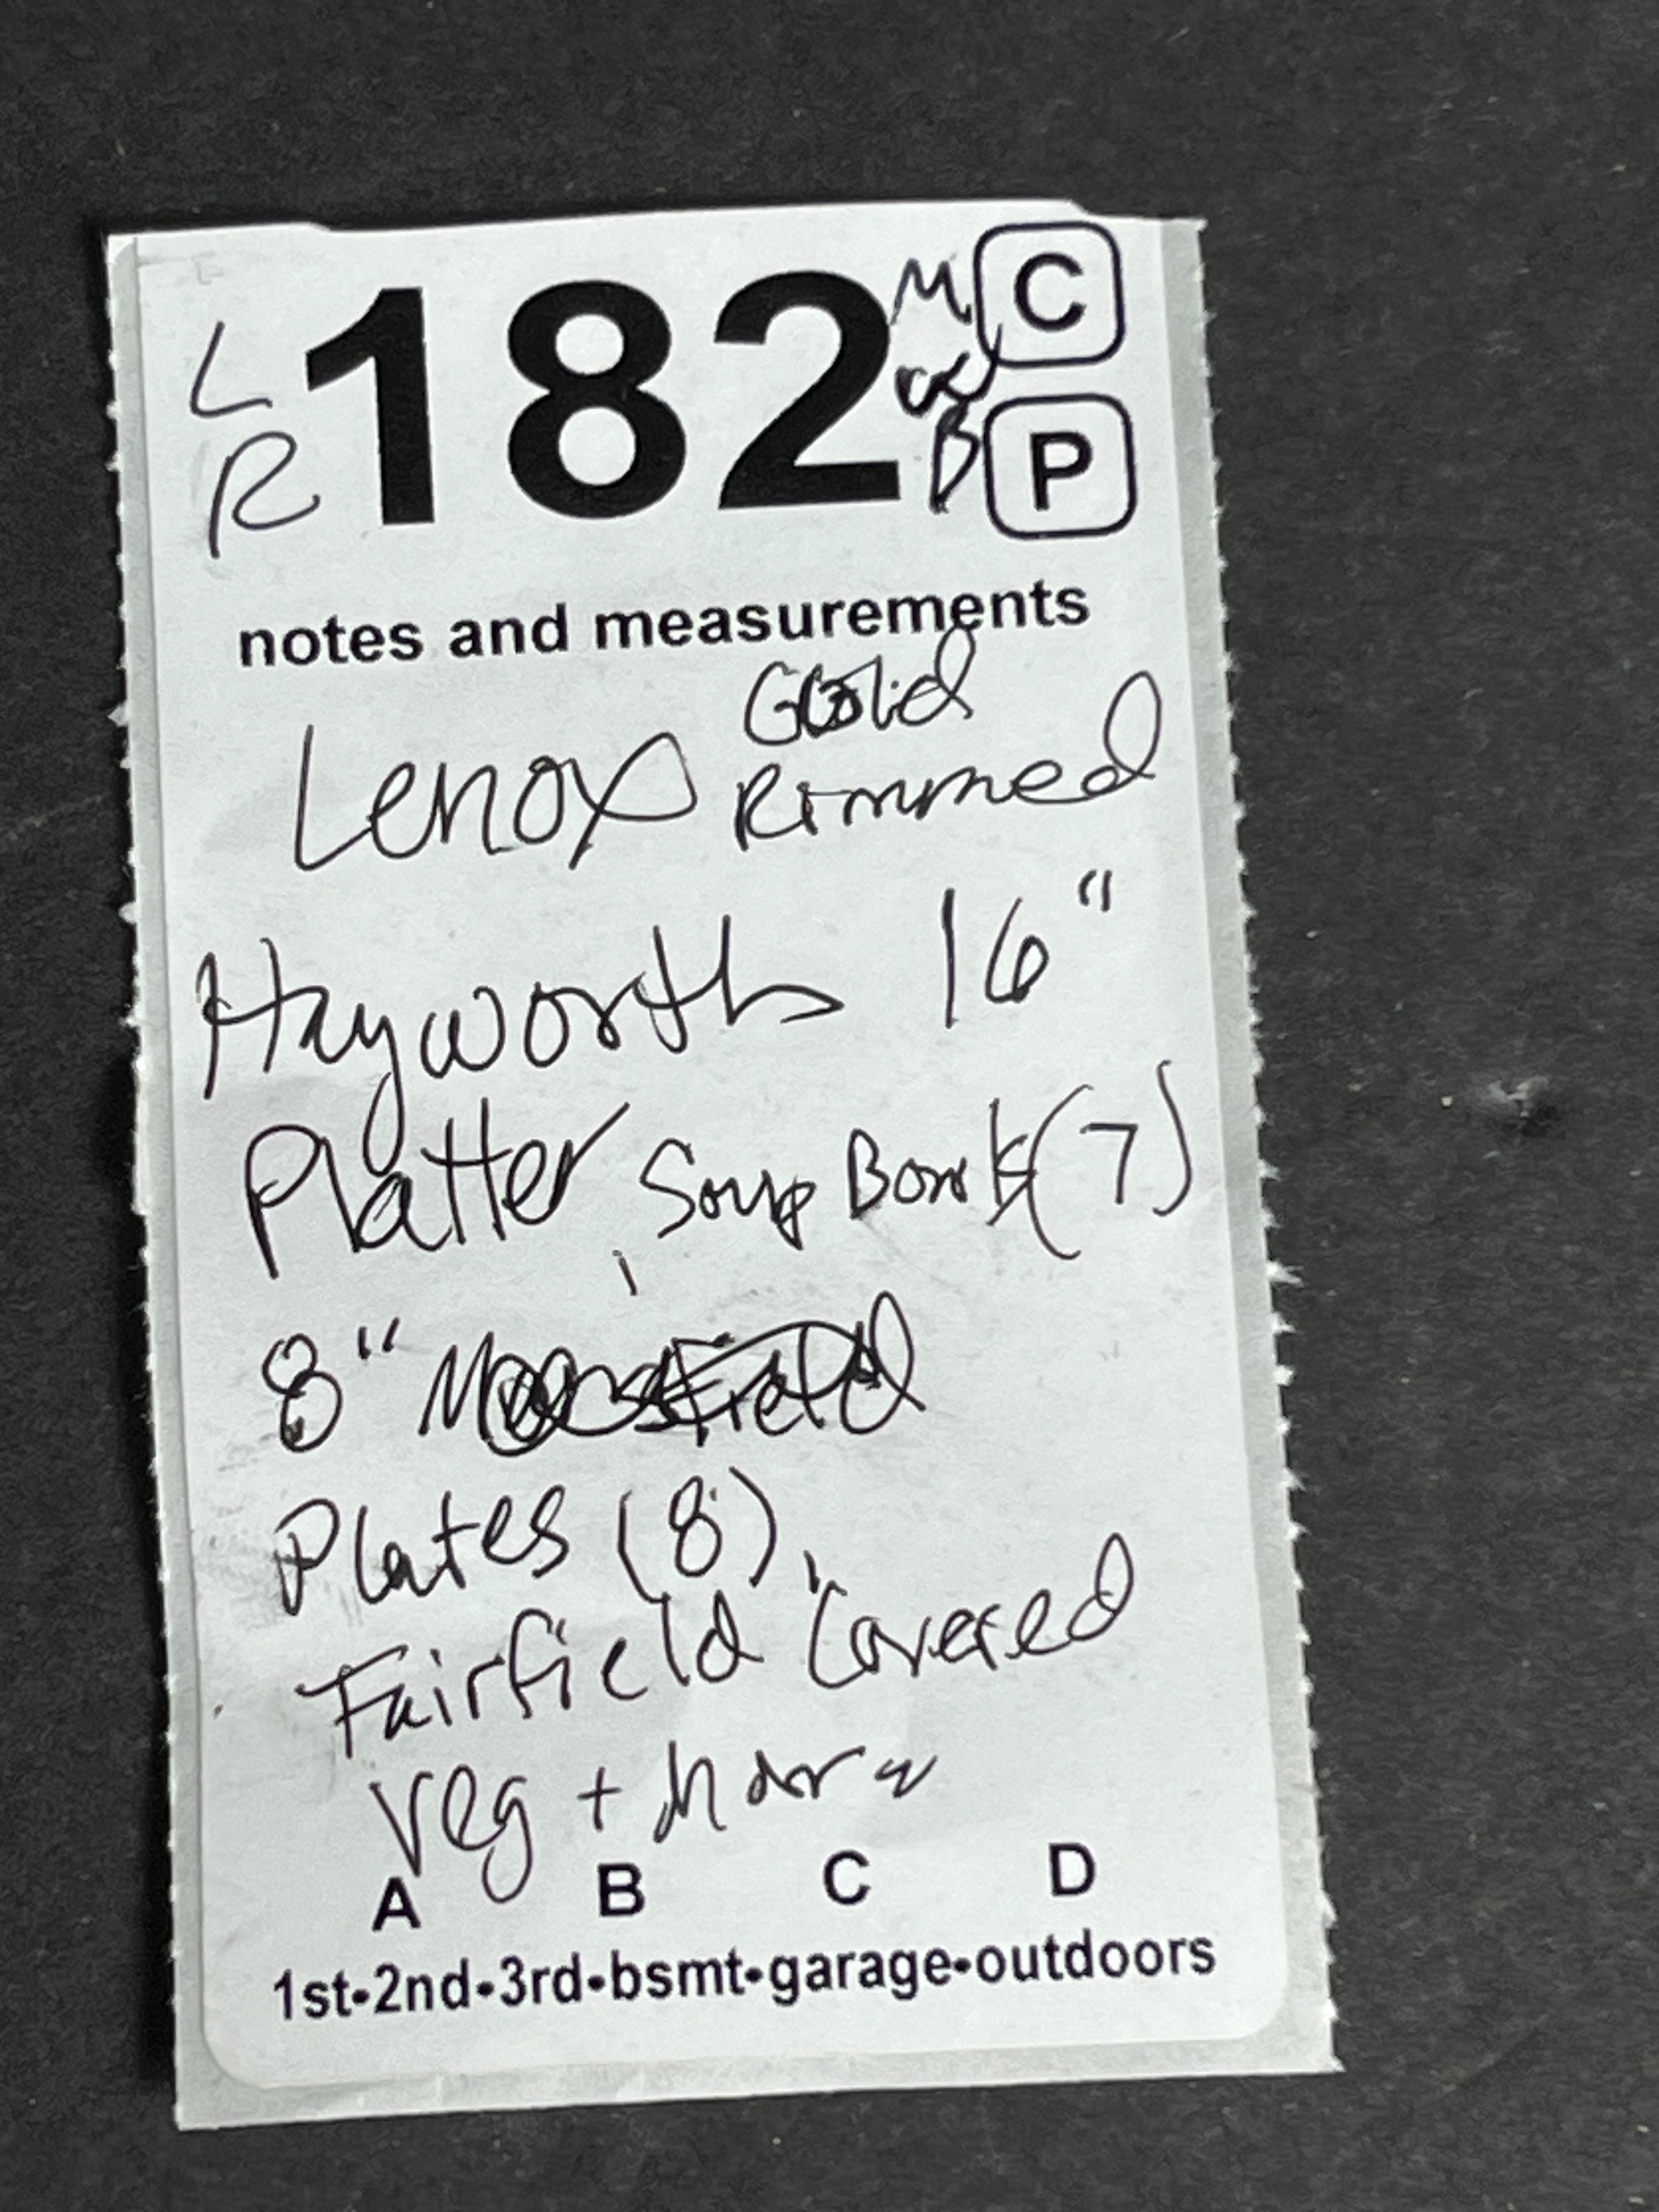 L 182 M C
R B P
notes and measurements
Gold
Lenox Rimmed
Hayworth 16"
Platter, Soup Bowls (7)
8"
Plates (8),
Fairfield Covered
Veg +
A B C D
1st•2nd•3rd•bsmt•garage•outdoors